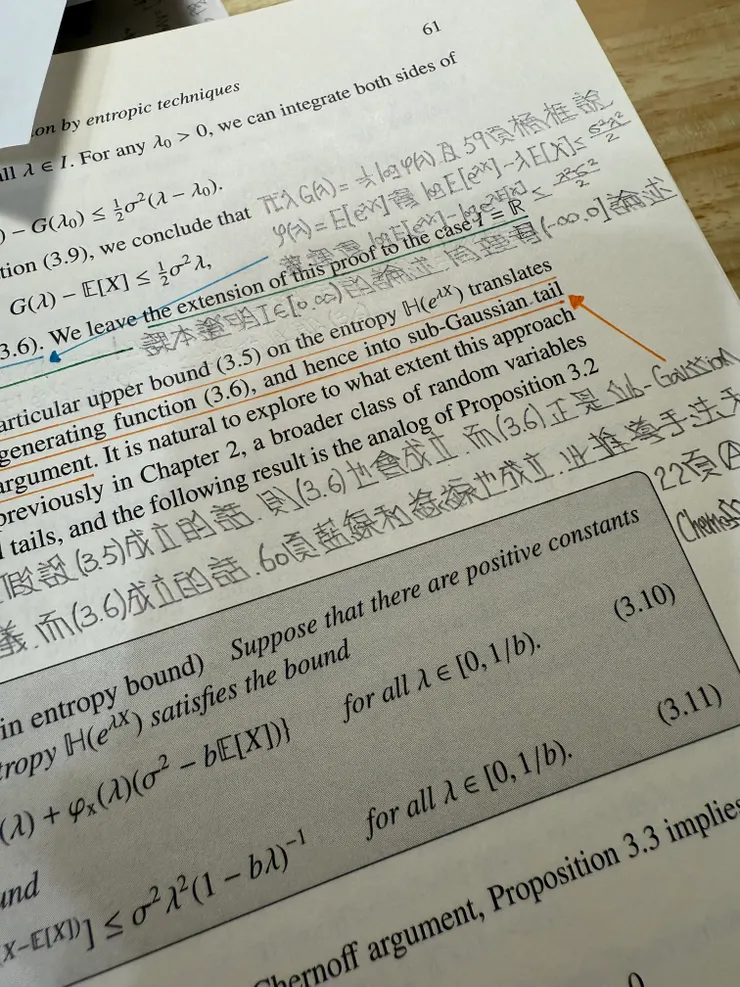 61
on by entropic techniques
all λ ∈ I. For any λ₀ > 0, we can integrate both sides of
) − G(λ₀) ≤ ½σ²(λ − λ₀).
tion (3.9), we conclude that
G(λ) − 𝔼[X] ≤ ½σ²λ,
3.6). We leave the extension of this proof to the case I = ℝ
課本證明I∈[0.∞)的論述.同理看(-∞.0]論述
articular upper bound (3.5) on the entropy ℍ(e^{λX}) translates
generating function (3.6), and hence into sub-Gaussian tail
argument. It is natural to explore to what extent this approach
previously in Chapter 2, a broader class of random variables
l tails, and the following result is the analog of Proposition 3.2
假設(3.5)成立的話.則(3.6)也會成立.而(3.6)正是Sub-Gaussian
義.而(3.6)成立的話.60頁藍線和綠線也成立.此推導手法
22頁
in entropy bound) Suppose that there are positive constants
tropy ℍ(e^{λX}) satisfies the bound
(λ) + φₓ(λ)(σ² − b𝔼[X])} for all λ ∈ [0, 1/b). (3.10)
und
X−𝔼[X])] ≤ σ²λ²(1 − bλ)⁻¹ for all λ ∈ [0, 1/b). (3.11)
Chernoff argument, Proposition 3.3 implies